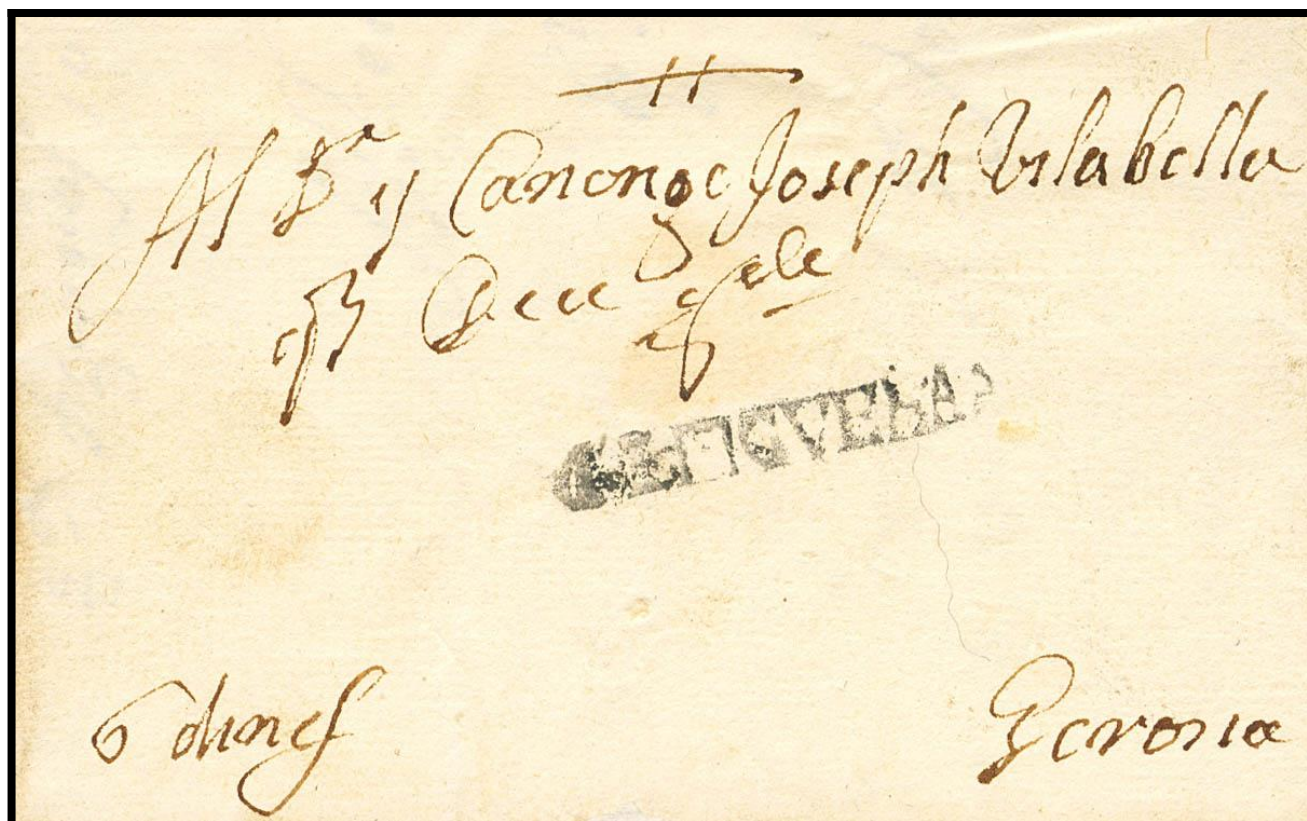 Al Dr y Canonge Joseph Vilabella
qe Deu gde
6 dines
Gerona